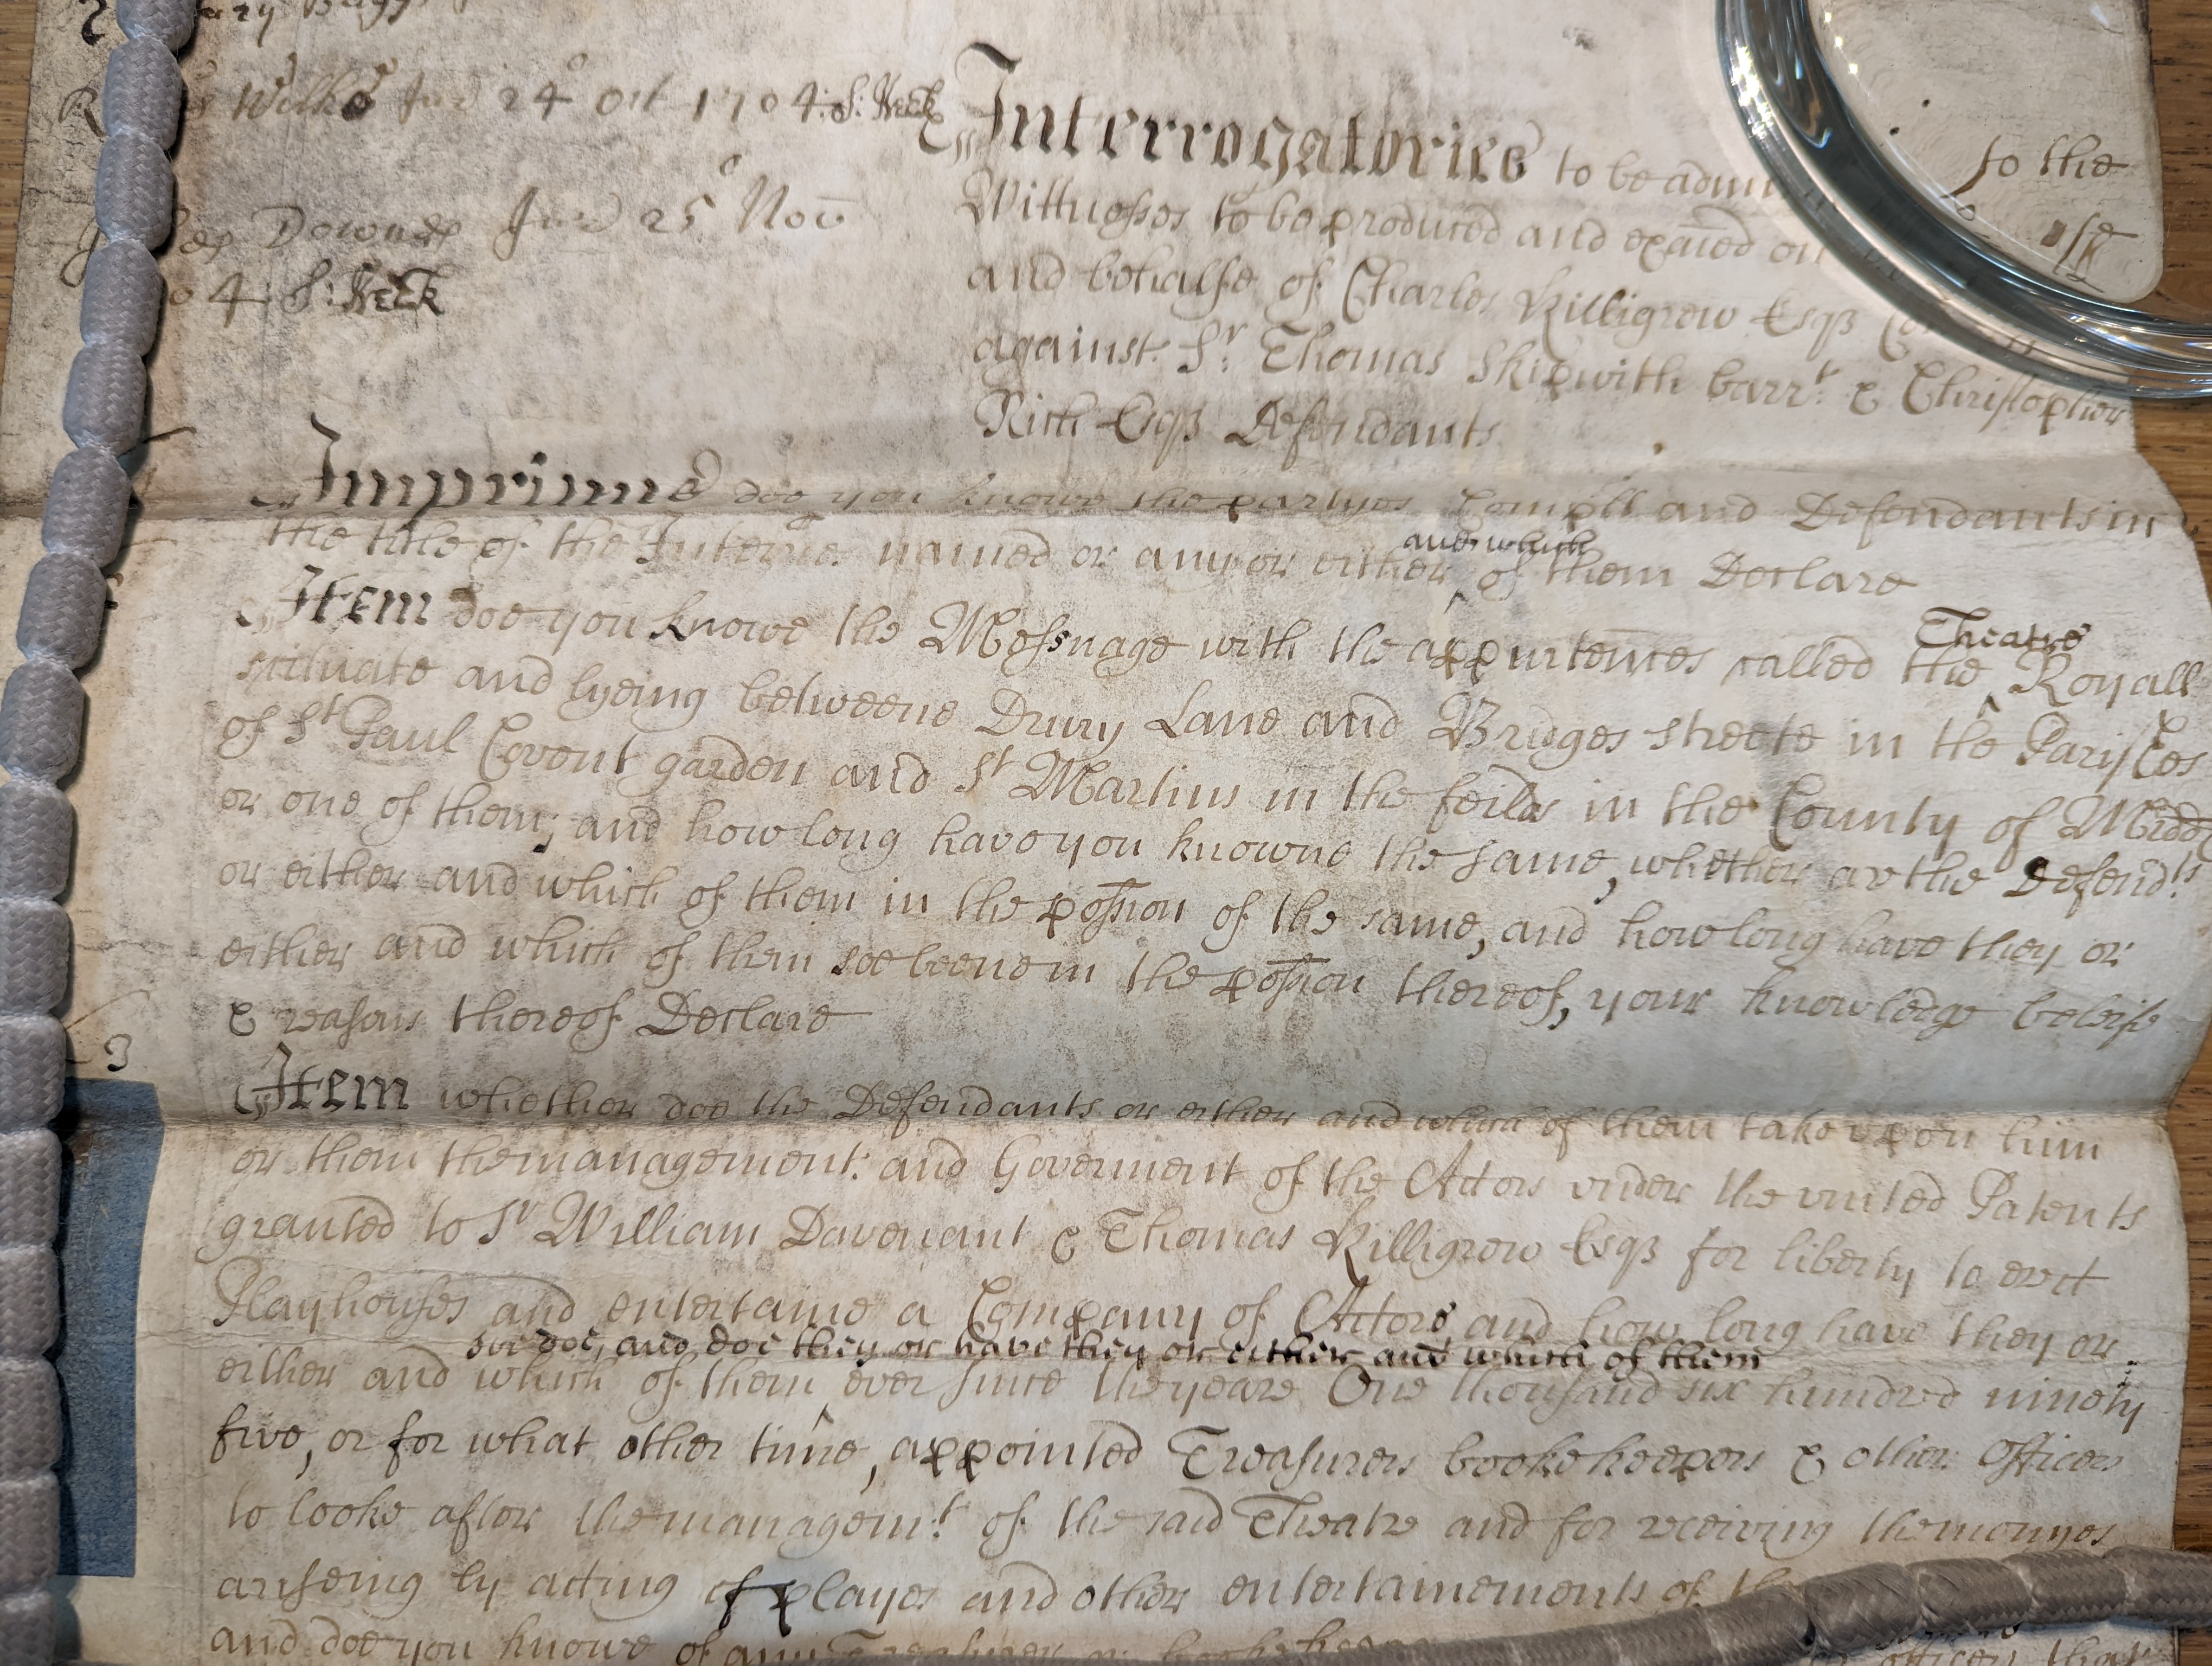 Wilks Jur 24° Oct 1704: S: Keck
Downes Jur 25° Nov
04 S: Keck
Interrogatories to be to the
Wittnesses to be produced and exaied on ye
and behalfe of Charles Killigrew Esqr
against Sr: Thomas Skipwith barrt: & Christopher
Rich Esqr Defendants
Imprimis doe you knowe the partyes Complt and Defendants in
the title of the Interrie: named or any or either and which of them Declare
Item doe you knowe the Messuage with the appurtences called the Theatre Royall
scituate and lyeing betweene Drury Lane and Bridges streete in the Parishes
of St Paul Covent garden and St Martins in the feilds in the County of Midd
or one of them, and how long have you knowne the same, whether are the Defendts
or either and which of them in the possion of the same, and how long have they or
either and which of them soe beene in the possion thereof, your knowledge beleife
& reasons thereof Declare
3
Item whether doe the Defendants or either and which of them take upon him
or them the management: and Goverment of the Actors under the united Patents
granted to Sr William Davenant & Thomas Killigrew Esqr for liberty to erect
Playhouses and entertaine a Company of Actors, and how long have they or
soe doe, and doe they or have they or either and which of them
either and which of them ever since the yeare One thousand six hundred ninety
five, or for what other time, appointed Treasurers bookekeepers & other officers
to looke after the managemt: of the said Theatre and for receiving the monyes
ariseing by acting of playes and other entertainements of
and doe you knowe of any